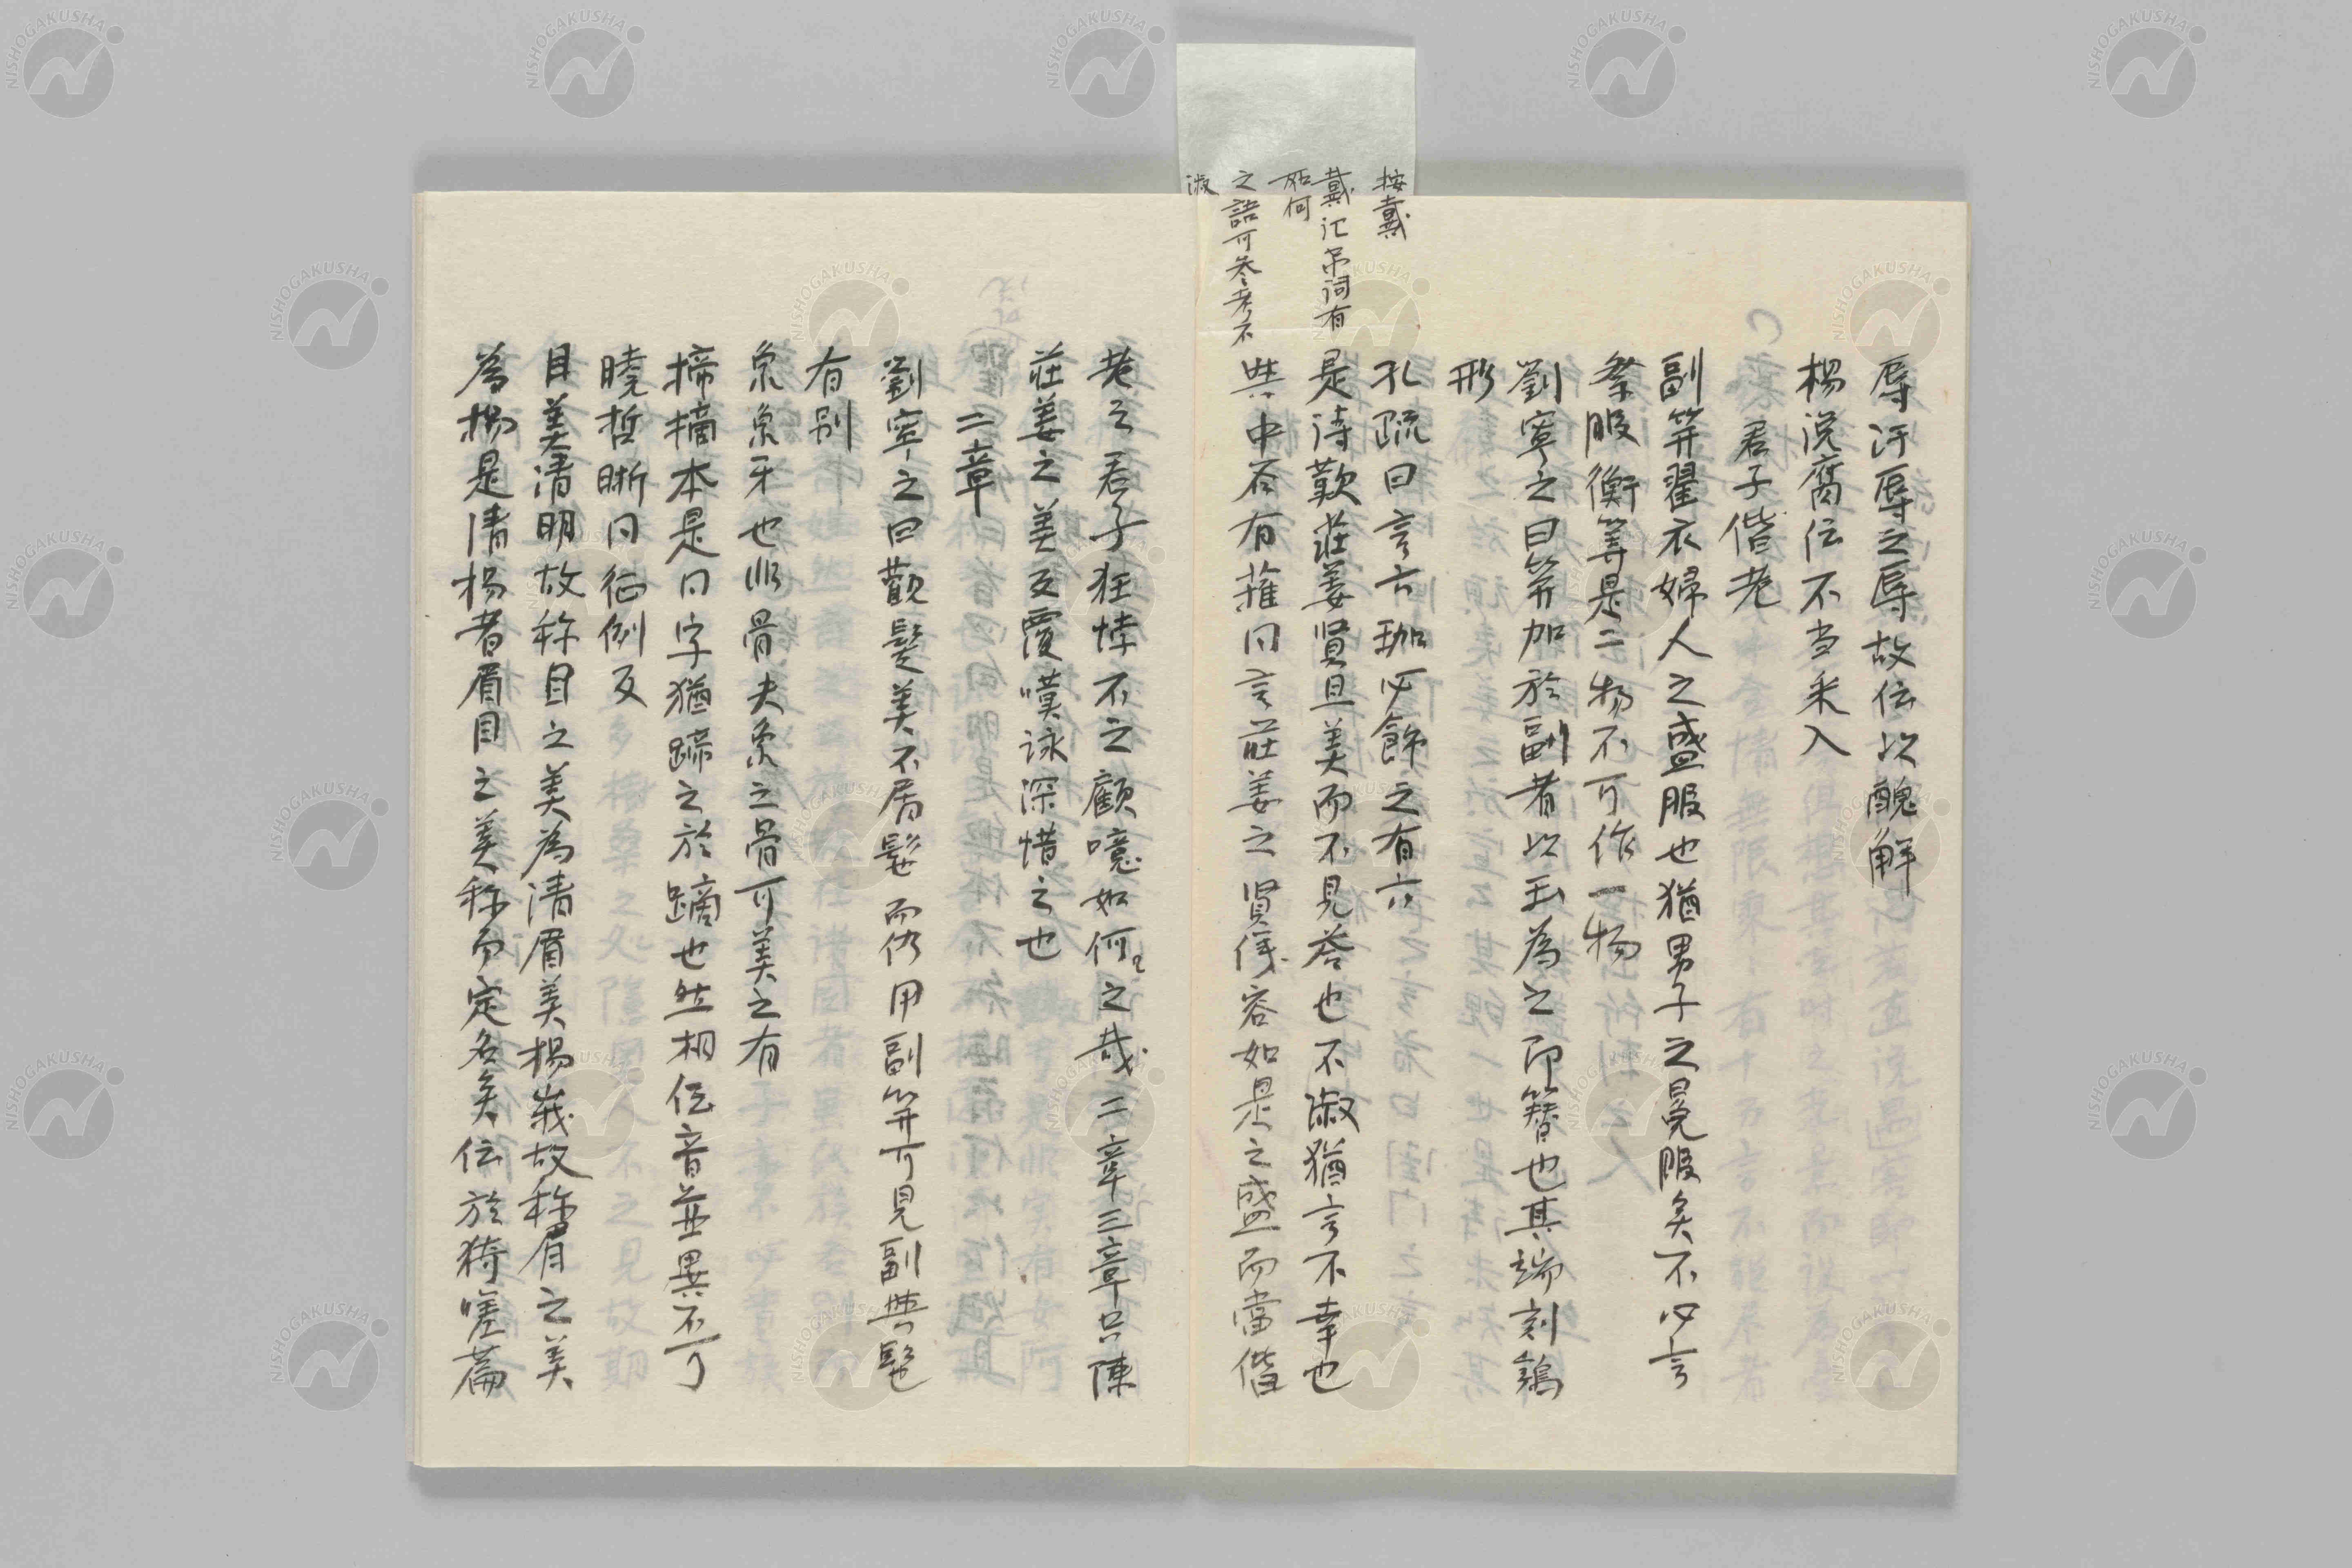 辱汙辱之辱故伝以醜解
楊説腐伝不当采入
君子偕老
副笄翟衣婦人之盛服也猶男子之冕服矣不必言
祭服衡笄是二物不可作一物
劉寔之曰笄加於副者以玉為之即簪也其端刻鷂
形
孔疏曰言六珈必飾之有六
是詩歎荘姜賢且美而不見荅也不淑猶言不幸也
與中谷有蓷同言荘姜之賢徳容如是之盛而當偕
按戴
戴記弔詞有
如何
之語可参考不
淑
老之君子狂悖不之顧噫如何々之哉二章三章只陳
荘姜之美反覆嘆詠深惜之也
二章
劉寔之曰観髪美不屑髢而仍用副笄可見副與髢
有別
象象牙也非骨夫象之骨可美之有
揥摘本是同字猶蹄之於蹢也然相伝音並異不可
暁晢晰同征例反
目美清明故称目之美為清眉美揚峩故称眉之美
為揚是清揚者眉目之美称而定名矣伝於猗嗟篇